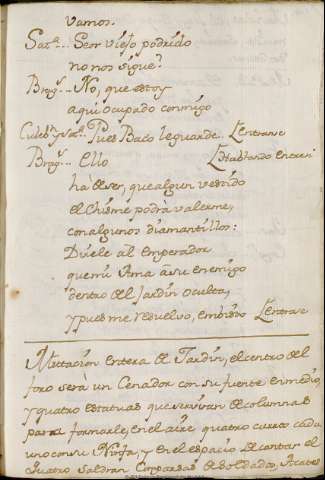 Vamos.
Sat.ª... Seor viejo podrido
no nos sigue?
Brag.ⁿ... No, que estoy
aqui ocupado conmigo
Culeb.ⁿ y Sat.ª Pues Baco le guarde. Entranse
Brag.ⁿ... Ello Hablando entresi
hà de ser, que algun vestido
el chisme podrà valerme,
con algunos diamantillos:
Direle al Emperador
que mi Ama à su enemigo
dentro del Jardin oculta,
y pues me resuelvo, embisto Entrase
Mutacion entera de Jardin, el centro del
foro serà un Cenador con su fuente en medio,
y quatro estatuas que sirvan de columnas
para formarle, en el aire quatro carros cada
uno con su Ninfa, y en el espacio de cantar el
Quatro saldran Comparsas de Soldados,